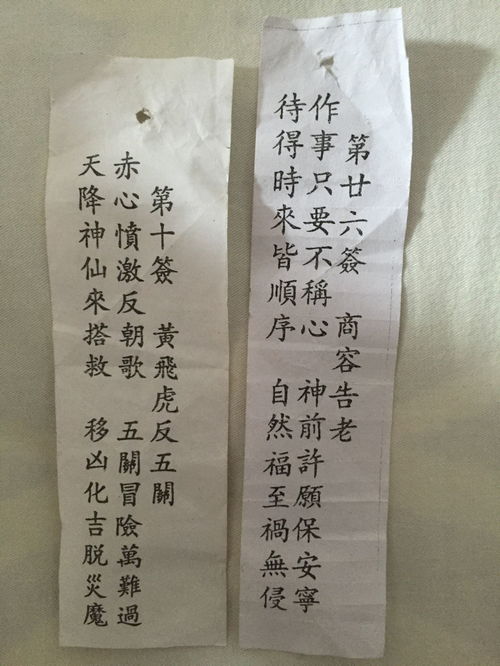 第廿六簽 商容告老
作事只要不稱心 神前許願保安寧
待得時來皆順序 自然福至禍無侵
第十簽 黃飛虎反五關
赤心憤激反朝歌 五關冒險萬難過
天降神仙來搭救 移凶化吉脱災魔